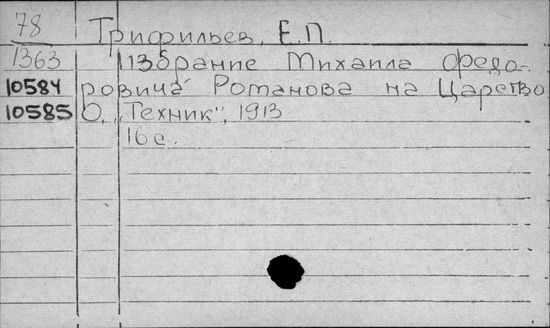 78 Трифильев, Е.П.
1363 Избрание Михаила Федо-
10584 ровича Романова на Царство
10585 О, „Техник", 1913
16 с.